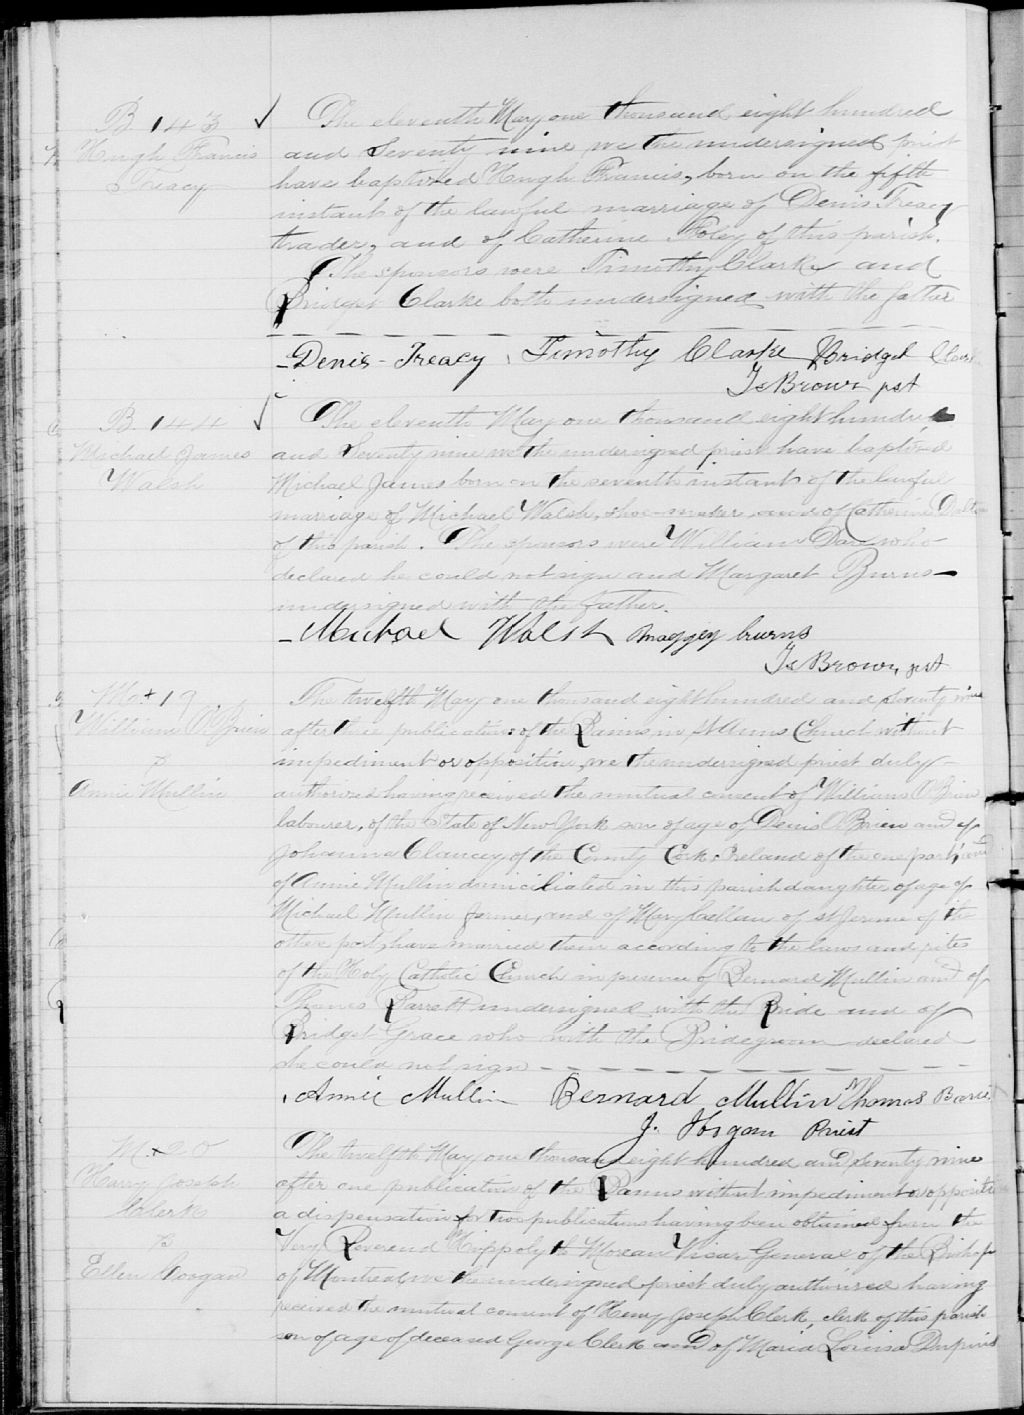 B 143
Hugh Francis
Treacy
The eleventh May one thousand eight hundred
and Seventy nine we the undersigned priest
have baptized Hugh Francis, born on the fifth
instant of the lawful marriage of Denis Treacy
trader, and of Catherine Foley of this parish.
The sponsors were Timothy Clarke and
Bridget Clarke both undersigned with the father
Denis Treacy Timothy Clarke Bridget
Js Brown pst
B 144
Michael James
Walsh
The eleventh May one thousand eight hundred
and Seventy nine we the undersigned priest have baptized
Michael James born on the seventh instant of the lawful
marriage of Michael Walsh, shoe-maker and of Catherine Dalton
of this parish. The sponsors were William who
declared he could not sign and Margaret Burns
undersigned with the father.
Michael Walsh Maggey burns
Js Brown, pst
M + 19
William O'Brien
&
Annie Mullin
The twelfth May one thousand eight hundred and Seventy nine
after three publications of the Banns in St Anns Church without
impediment or opposition, we the undersigned priest duly
authorized having received the mutual consent of William O'Brien
labourer, of the State of New York son of age of Denis O'Brien and of
Johanna Clancey of the County Cork Ireland of the one part, and
of Annie Mullin domiciliated in this parish daughter of age of
Michael Mullin farmer, and of Mary Callan of St Jerome of the
other part, have married them according to the laws and rites
of the Holy Catholic Church in presence of Bernard Mullin and of
Thomas Barrett undersigned with the Bride and of
Bridget Grace who with the Bridegroom declared
she could not sign
Annie Mullin Bernard Mullin Thomas
J. Hogan Priest
M + 20
Harry Joseph
Clerk
&
Ellen Coogan
The twelfth May one thousand eight hundred and Seventy nine
after one publication of the Banns without impediment or opposition
a dispensation for two publications having been obtained from the
Very Reverend Hippolyth Moreau Vicar General of the Bishop
of Montreal we the undersigned priest duly authorized having
received the mutual consent of Henry Joseph Clerk, clerk of this parish
son of age of deceased George Clerk and of Maria Louisa